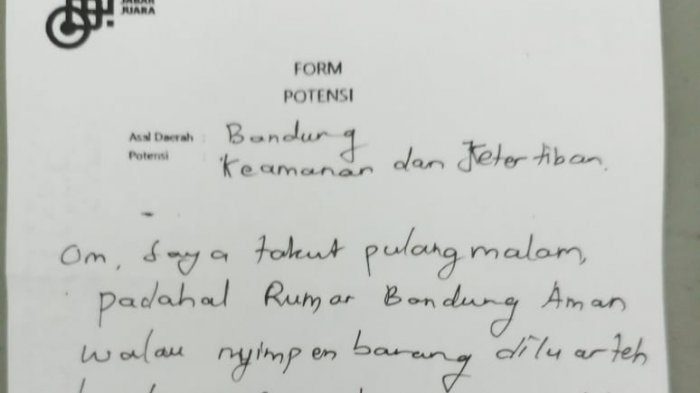 JABAR
JUARA
FORM
POTENSI
Asal Daerah : Bandung
Potensi : Keamanan dan Ketertiban.
Om, Saya takut pulang malam,
padahal Rumar Bandung Aman
walau nyimpen barang diluar teh